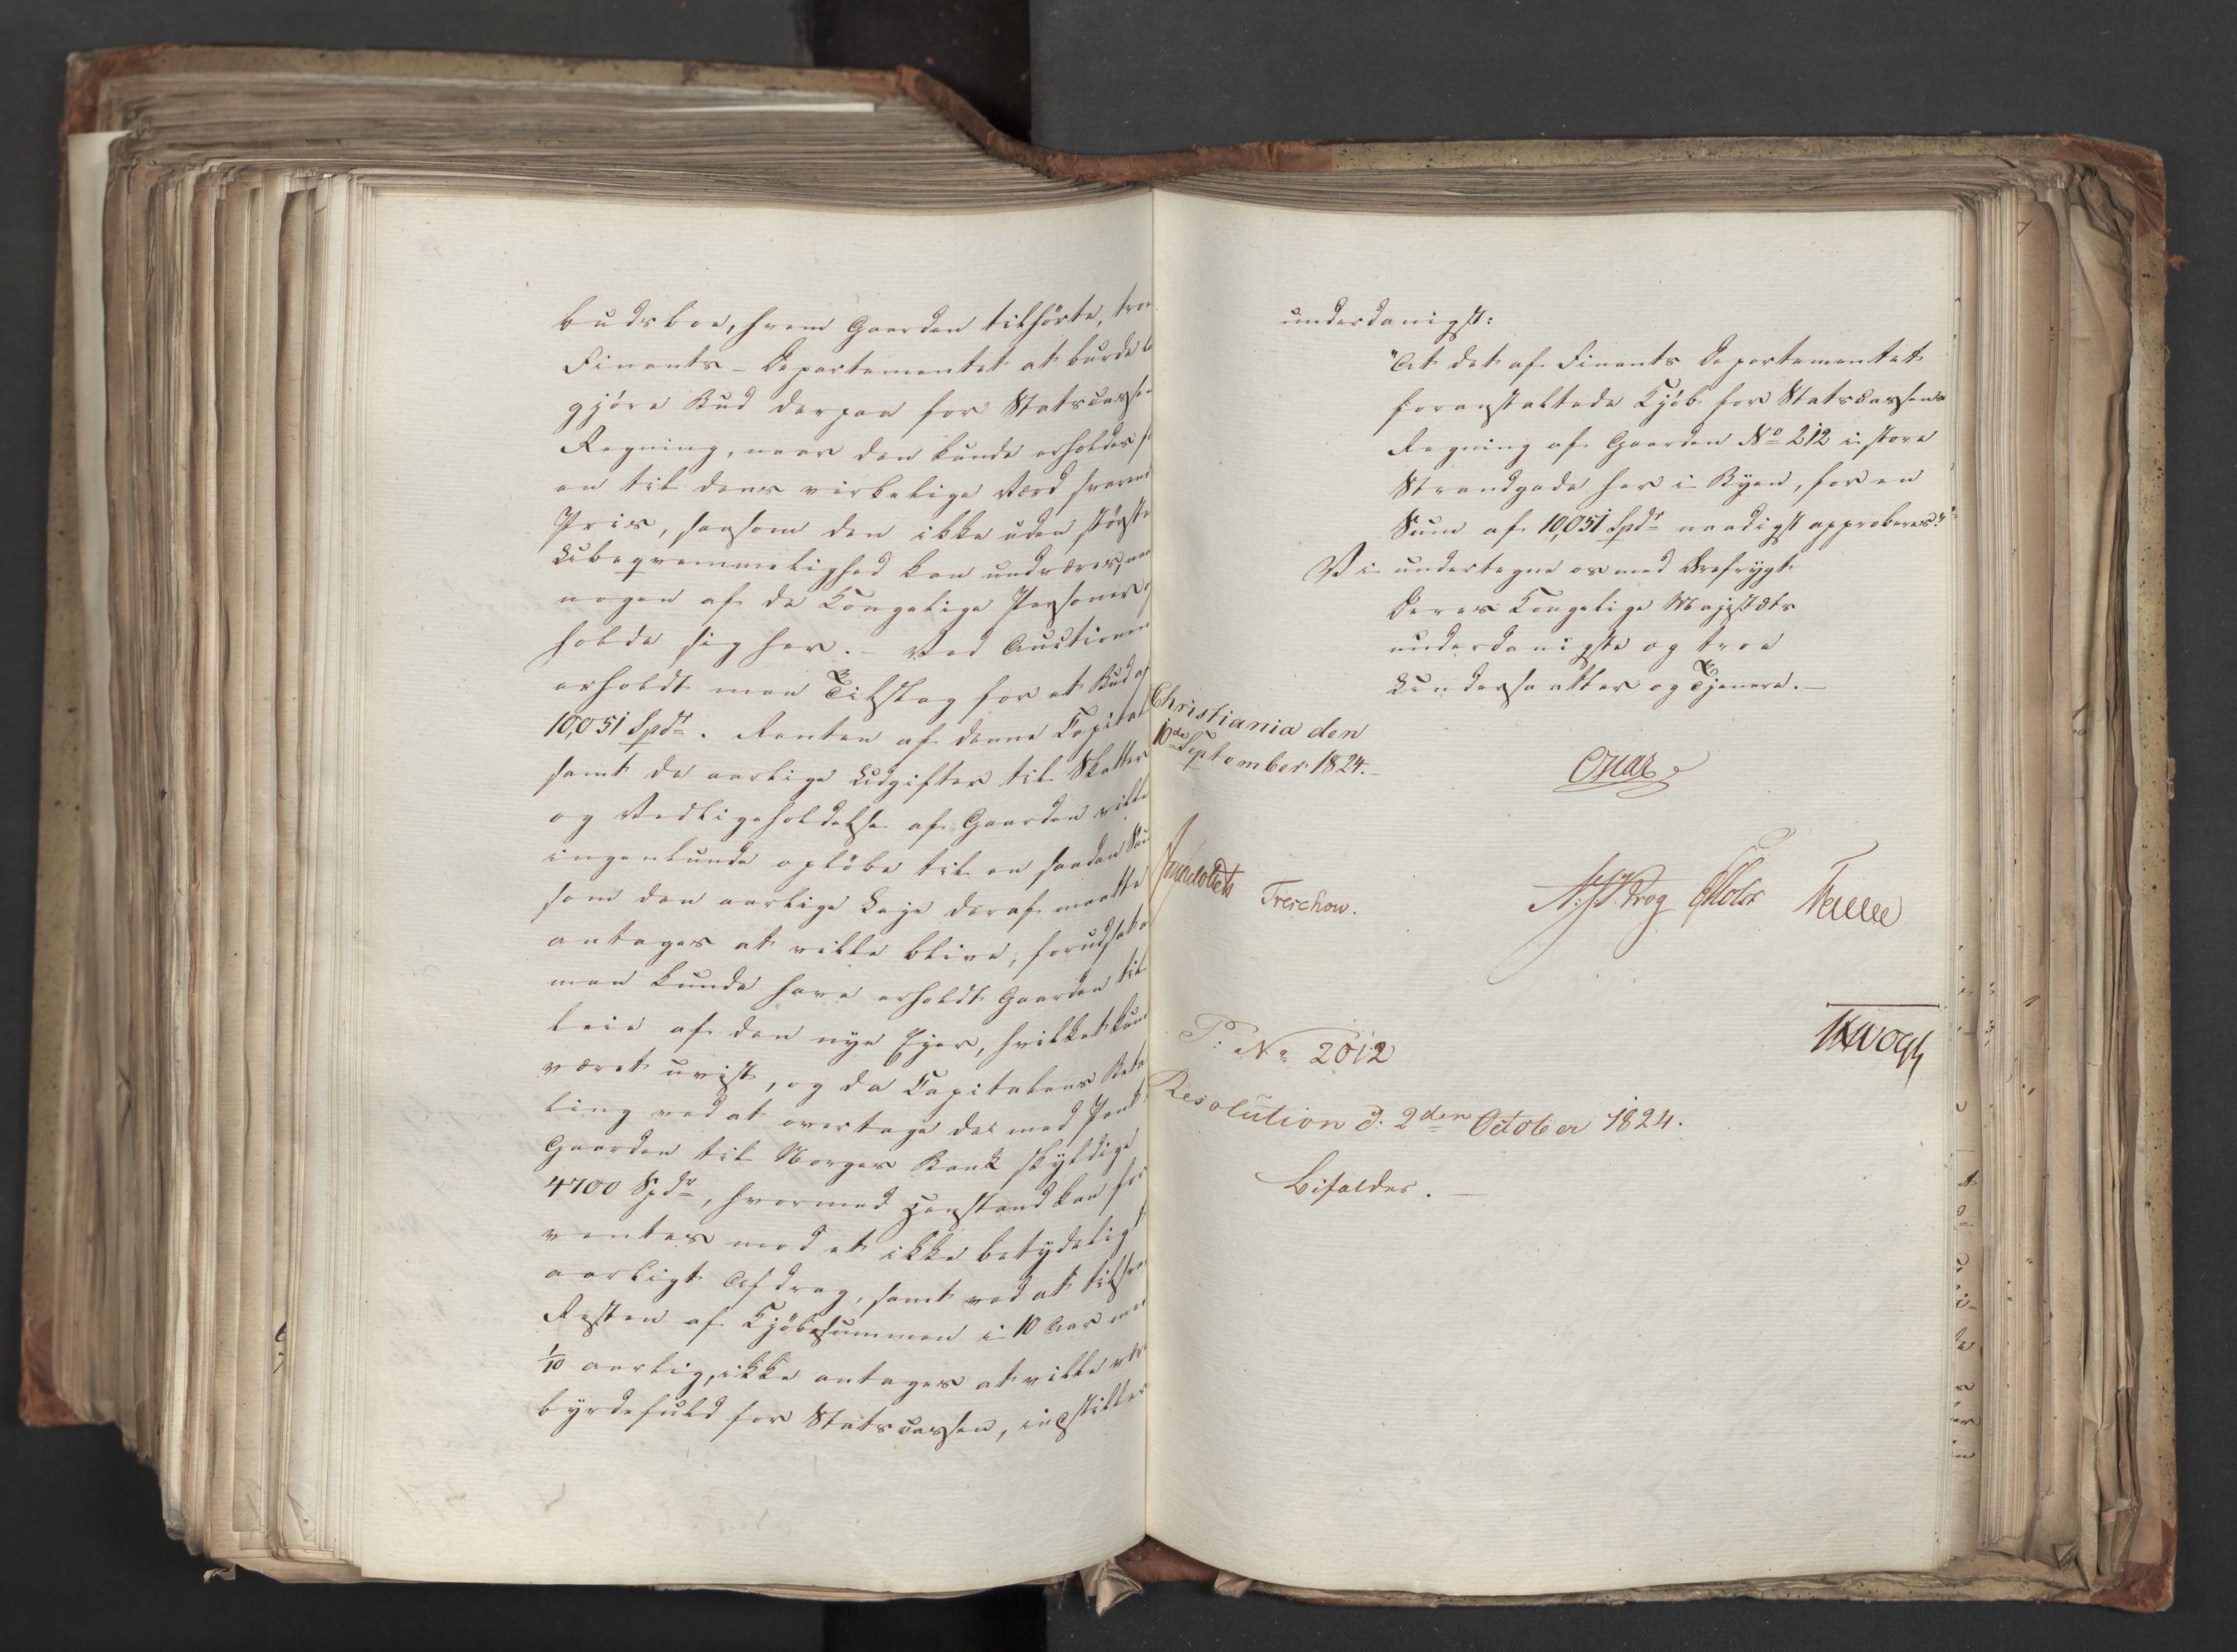 budsboe, hvem Gaarden tilhörte, troe
Finants-Departementet at burde
gjöre Bud derpaa for Statscassens
Regning, naar den kunde erholdes
en til dens virkelige Værd svarende
Priis, saasom den ikke uden största
Ubeqvemmelighed kan undværes, naar
nogen af de Kongelige Personer
holde sig her. – Ved Auctionen
erholdt man Tilslag for et Bud af
10,051 Spdr. Renten af denne Capital
samt de aarlige Udgifter til Skatter
og Vedligeholdelse af Gaarden ville
ingenlunde oplöbe til en saadan Sum
som den aarlige Leje deraf maatte
antages at ville blive, forudsat at
man kunde have erholdt Gaarden til
Leie af den nye Ejer, hvilket kunde
været uvist, og da Capitalens Beta
ling ved at overtage det med Pant i
Gaarden til Norges Bank skyldige
4700 Spdr, hvormed Henstand kan for
ventes mod et ikke betydeligt
aarligt Afdrag, samt ved at tilsvare
Resten af Kjöbesummen i 10 Aar med
1/10 aarlig, ikke antages at ville være
byrdefuld for Statscassen, indstilles
underdanigst:
"At det af Finants Departementet
foranstaltede Kjöb for Statscassens
Regning af Gaarden No 212 i store
Strandgade her i Byen, for en
Sum af 10,051 Spdr naadigst approberes."
Vi undertegne os med Ærefrygt
Deres Kongelige Majestæts
underdanigste og troe
Undersaatter og Tjenere. –
Christiania den
10de September 1824. –
Sommerfeldt
Treschow.
Krog
Holst
Fasting
P: No 2012
Resolution d. 2den October 1824.
Bifaldes. –